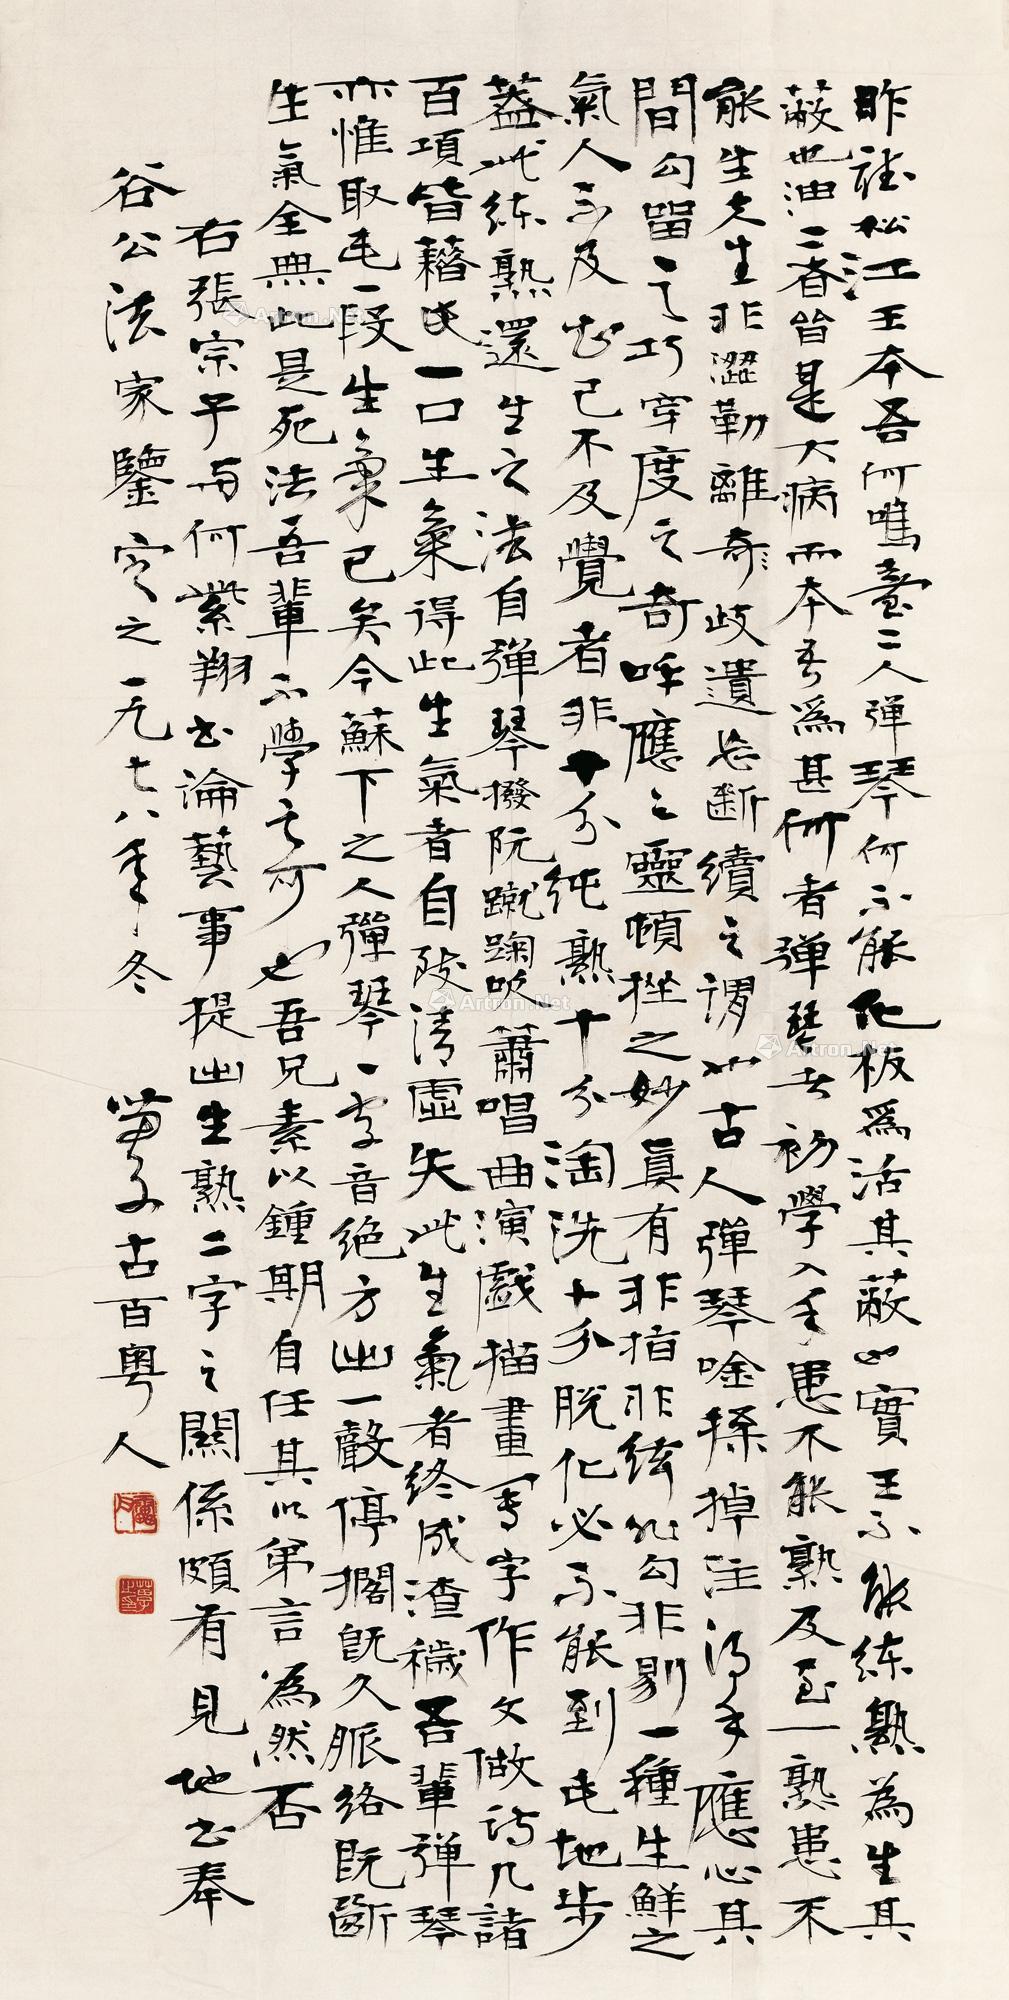 昨聽松江王本吾何鳴臺二人彈琴何不能化板為活其蔽也實王不能練熟為生其
蔽也油二者皆是大病而本吾為甚何者彈琴者初學入手患不能熟及至一熟患不
能生夫生非澀勒離奇歧遺忘斷續之謂也古人彈琴唫揉掉注得手應心其
間勾留之巧穿度之奇呼應之靈頓挫之妙真有非指非絃非勾非剔一種生鮮之
氣人不及知己不及覺者非十分純熟十分淘洗十分脫化必不能到此地步
蓋此練熟還生之法自彈琴撥阮蹴踘吹簫唱曲演戲描畫寫字作文做詩凡諸
百項皆藉此一口生氣得此生氣者自致清虛失此生氣者終成渣穢吾輩彈琴
亦惟取此一段生氣已矣今蘇下之人彈琴一字音絕方出一聲停擱既久脈絡既斷
生氣全無此是死法吾輩不學之可也吾兄素以鍾期自任其以弟言為然否
右張宗子與何紫翔書論藝事提出生熟二字之關係頗有見地書奉
谷公法家鑒定之一九七八年冬 古百粵人
Artron.Net
Artron.Net
Artron.Net